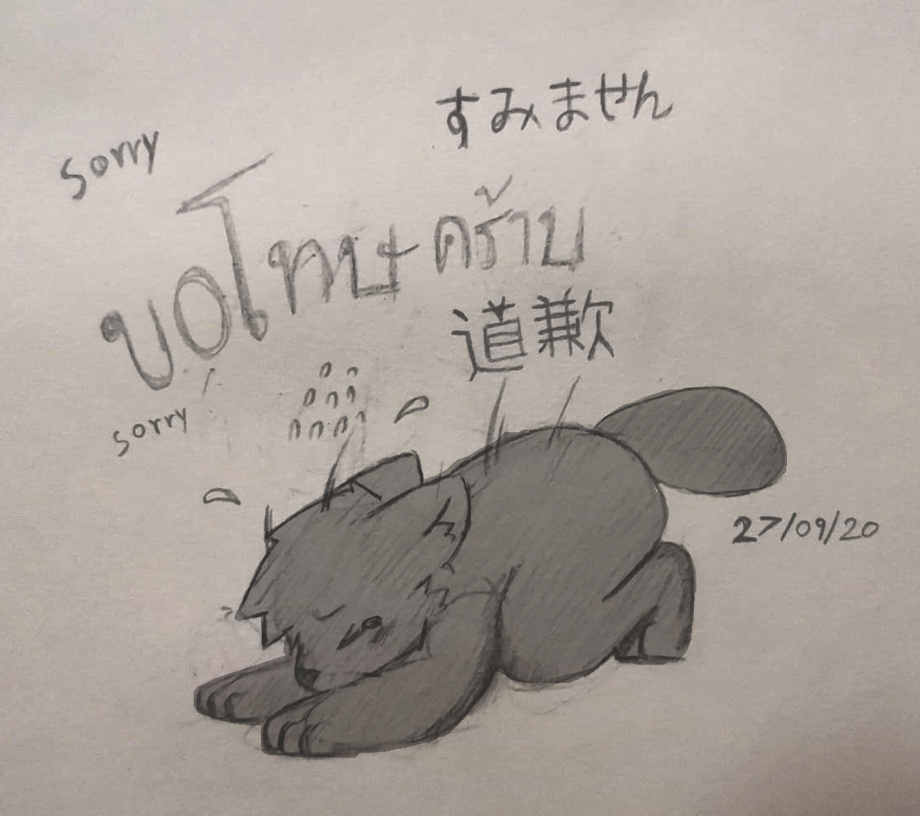 すみません
sorry
ขอโทษคร้าบ
道歉
sorry
27/09/20